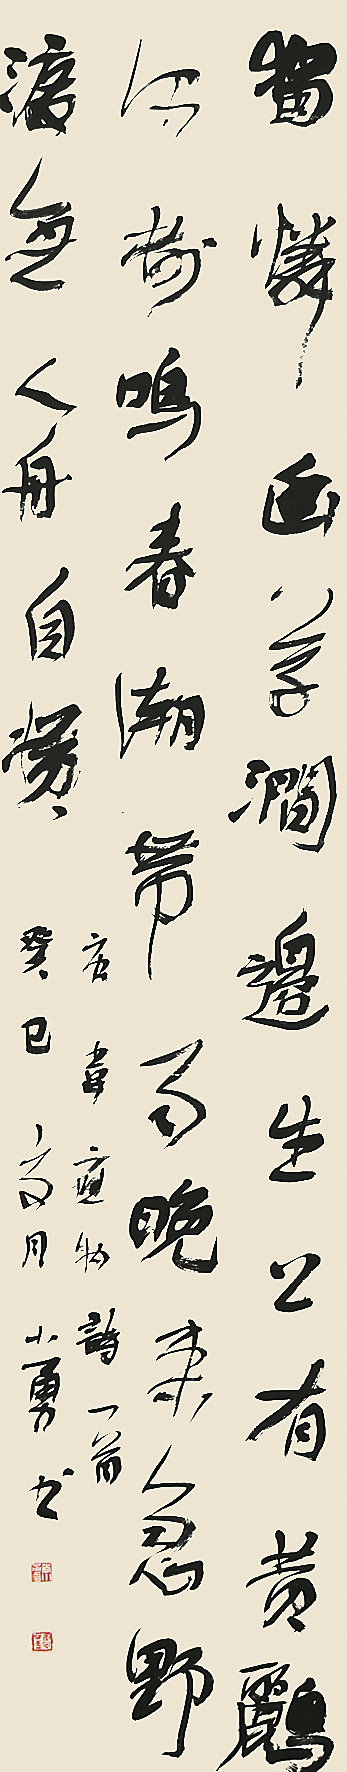 獨憐幽草澗邊生上有黄鸝
深樹鳴春潮帶雨晚來急野
渡無人舟自橫
唐韋應物詩一首
癸巳夏月小勇书